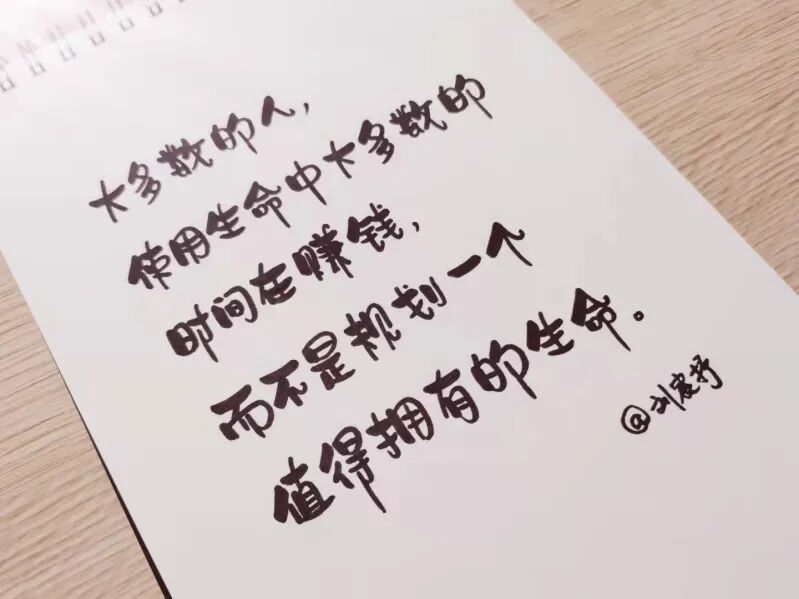 大多数的人,
使用生命中大多数的
时间在赚钱,
而不是规划一个
值得拥有的生命。
@刘宸抒